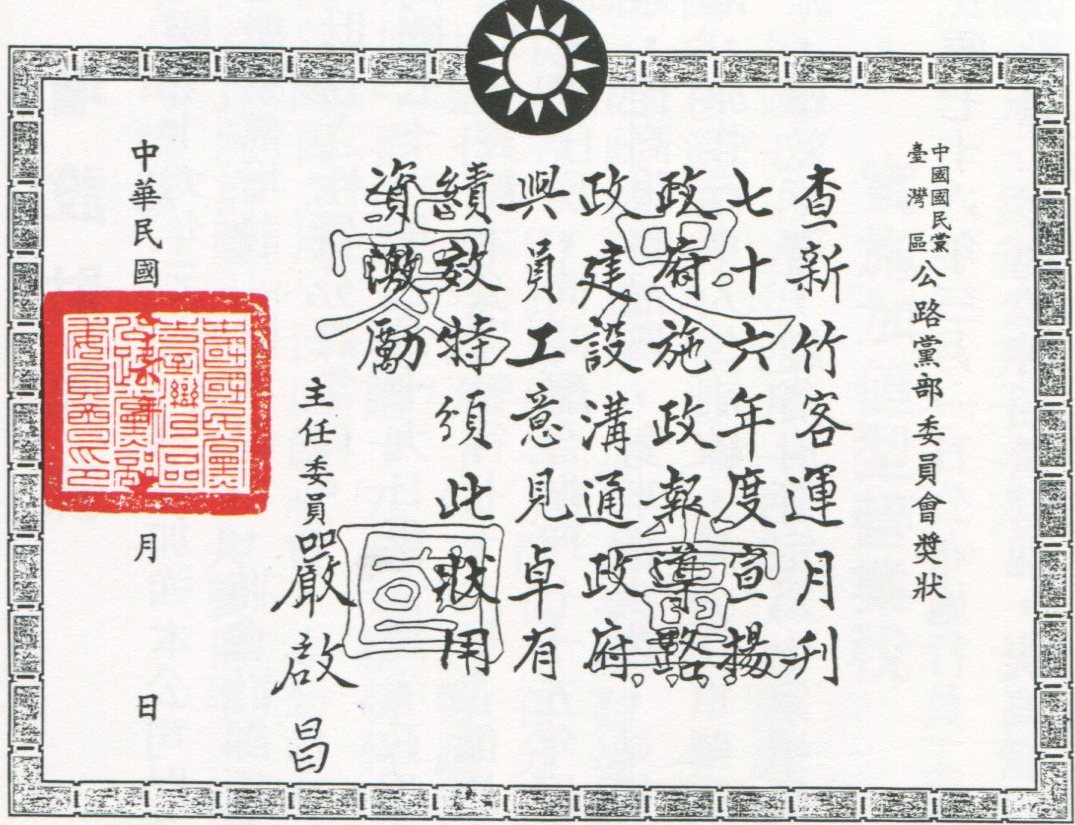 中國國民黨臺灣區公路黨部委員會獎狀
查新竹客運月刊
七十六年度宣揚
政府施政報導路
政建設溝通政府
與員工意見卓有
績效特頒此狀用
資激勵
主任委員嚴啟昌
中華民國
月
日